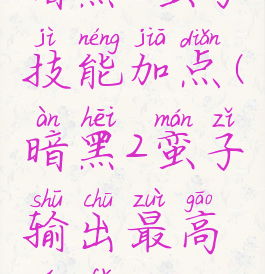 jì néng jiā diǎn
技能加点(
àn hēi mán zǐ
暗黑2蛮子
shū chū zuì gāo
输出最高